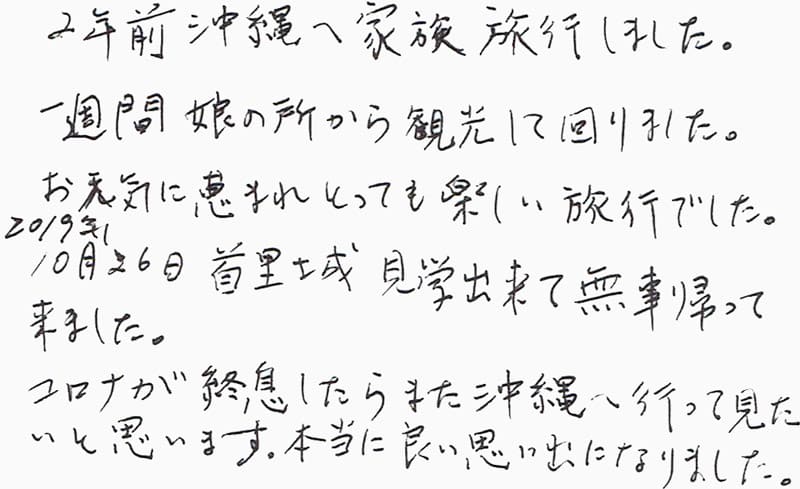 2年前沖縄へ家族旅行しました。
一週間娘の所から観光して回りました。
お天気に恵まれとっても楽しい旅行でした。
2019年
10月26日首里城見学出来て無事帰って
来ました。
コロナが終息したらまた沖縄へ行って見た
いと思います。本当に良い思い出になりました。